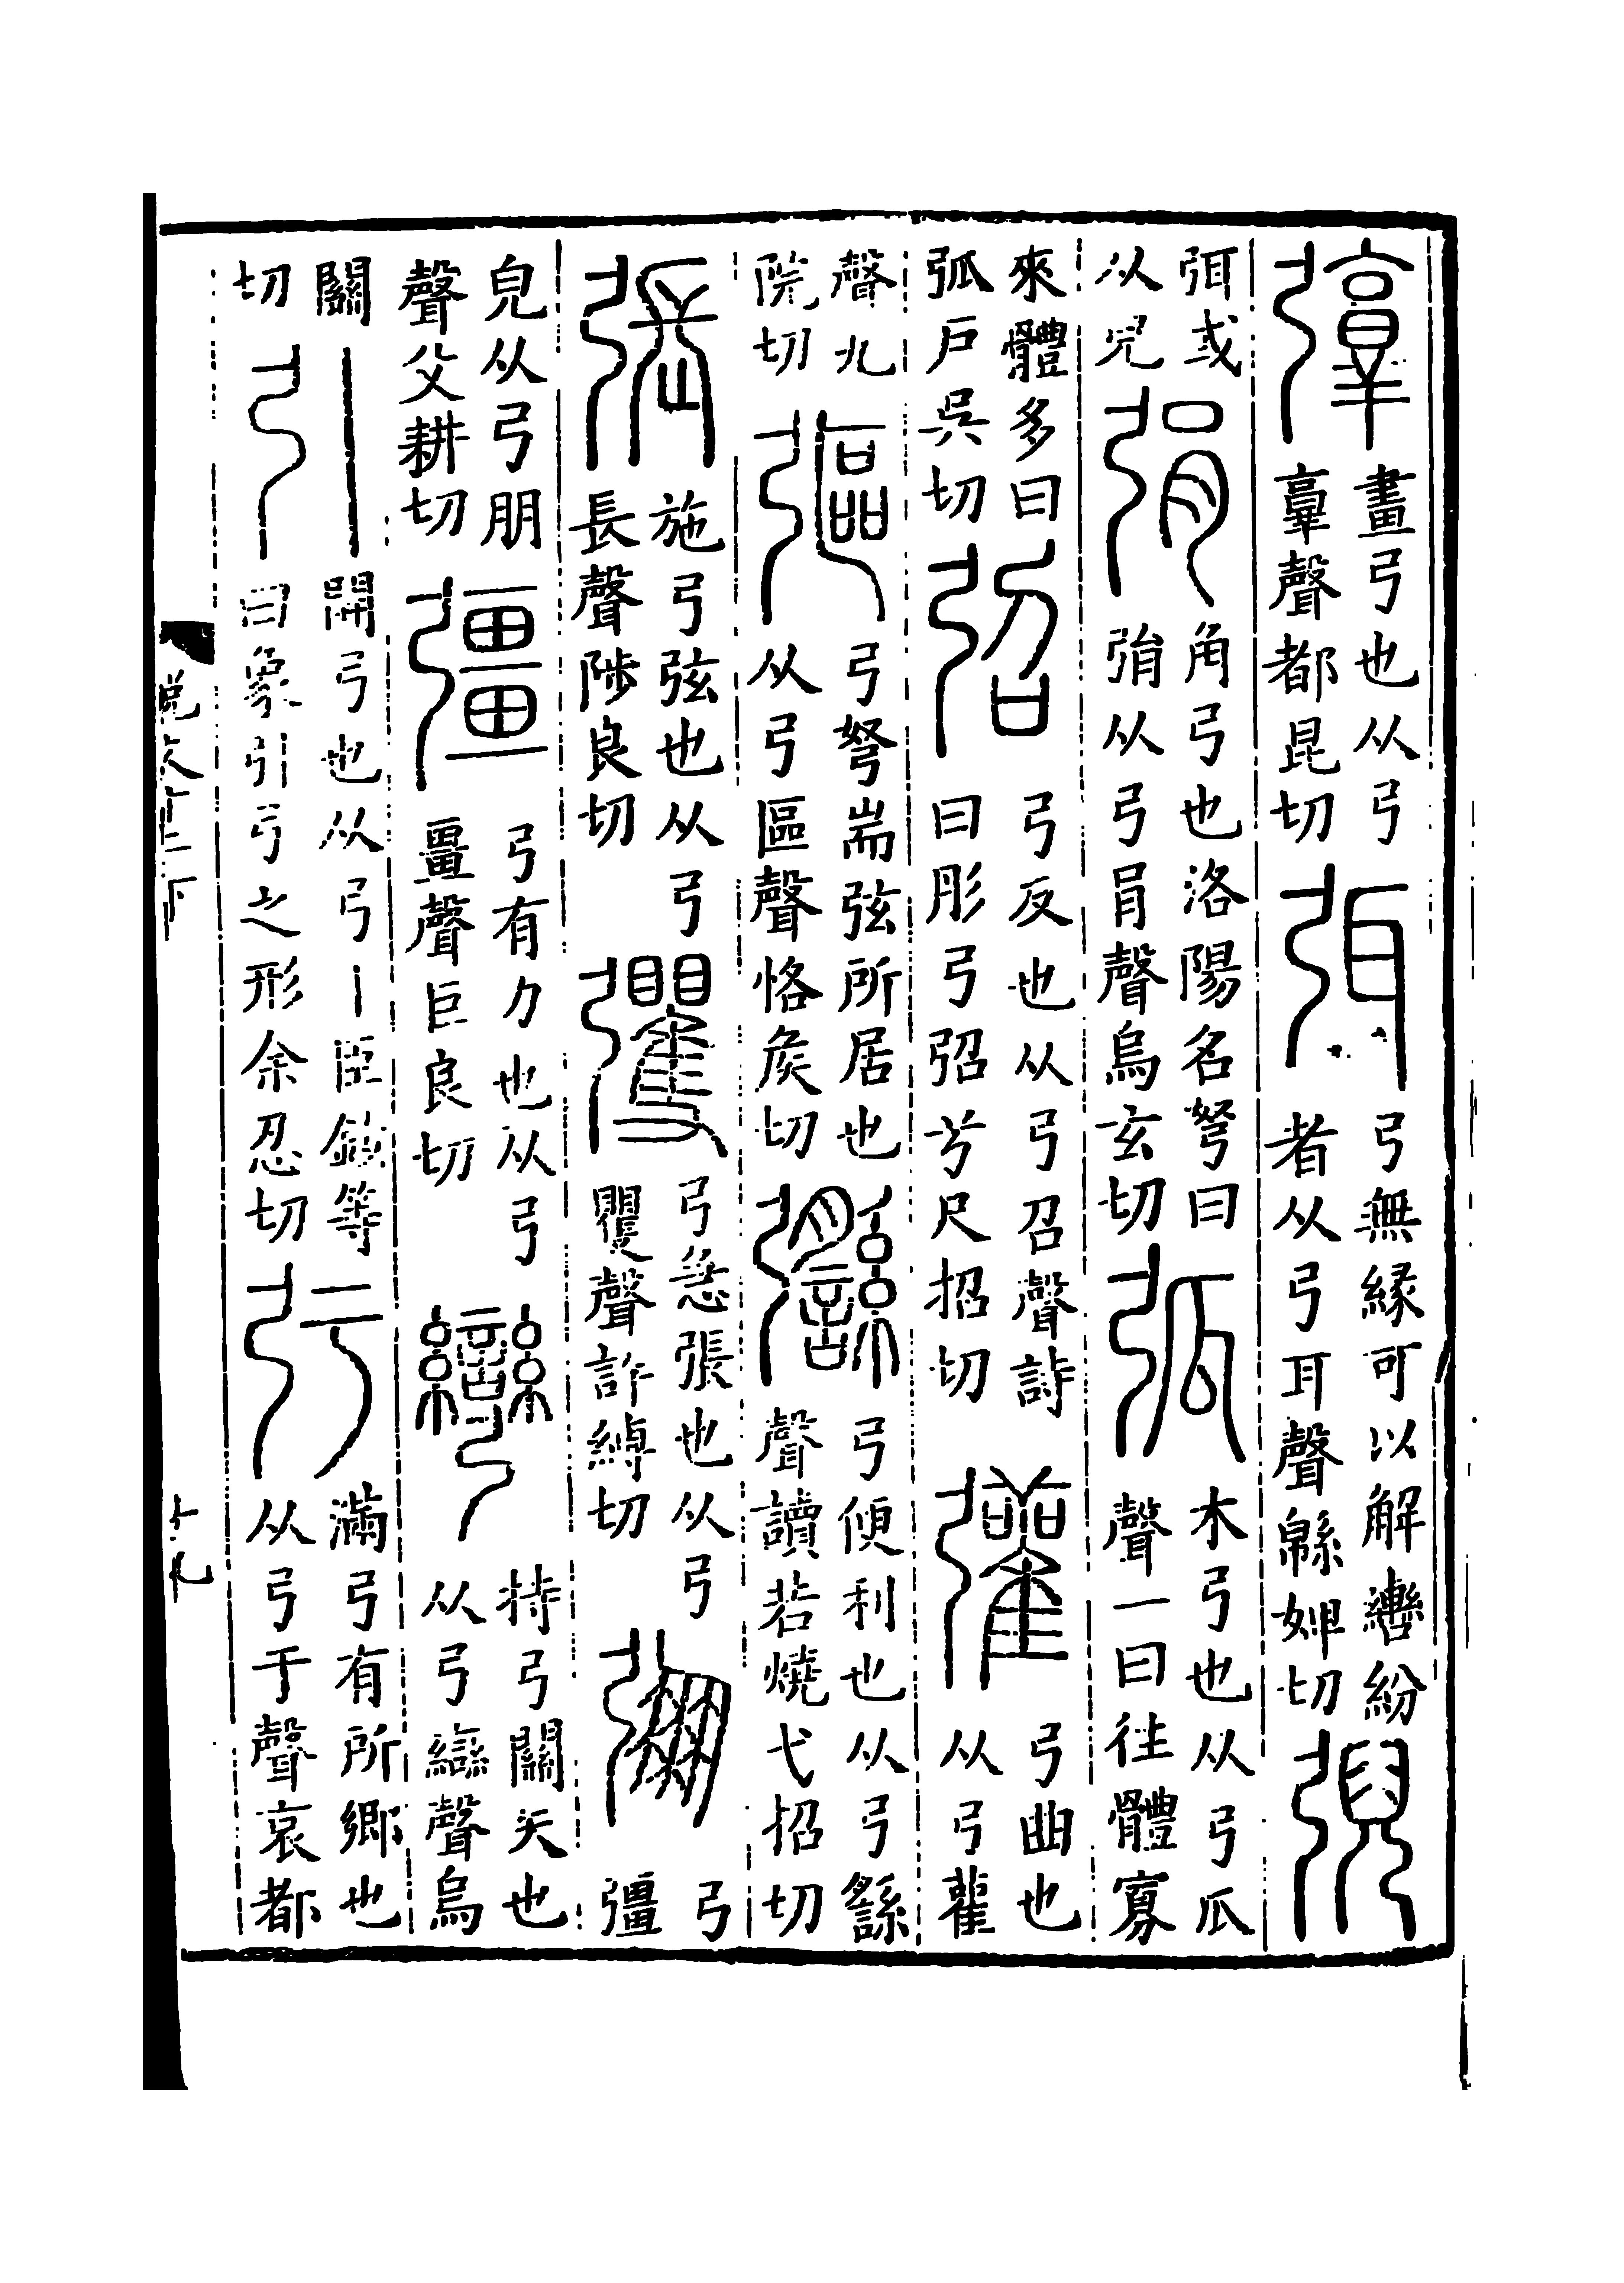 弴畫弓也从弓𦎫聲都昆切弭弓無緣可以解轡紛者从弓耳聲緜婢切𢐆
弭或从兒弲角弓也洛陽名弩曰弲从弓肙聲烏玄切弧木弓也从弓瓜聲一曰往體寡
來體多曰弧戶吳切弨弓反也从弓召聲詩曰彤弓弨兮尺招切𢐄弓曲也从弓雚
聲九院切彄弓弩耑弦所居也从弓區聲恪矦切𢐧弓便利也从弓䌛聲讀若燒弋招切
張施弓弦也从弓長聲陟良切彏弓急張也从弓矍聲許縛切弸弓彊
皃从弓朋聲父耕切彊弓有力也从弓畺聲巨良切彎持弓關矢也从弓䜌聲烏
關切引開弓也从弓丨臣鉉等曰象引弓之形余忍切弙滿弓有所鄉也从弓于聲哀都
說文十二下 十九